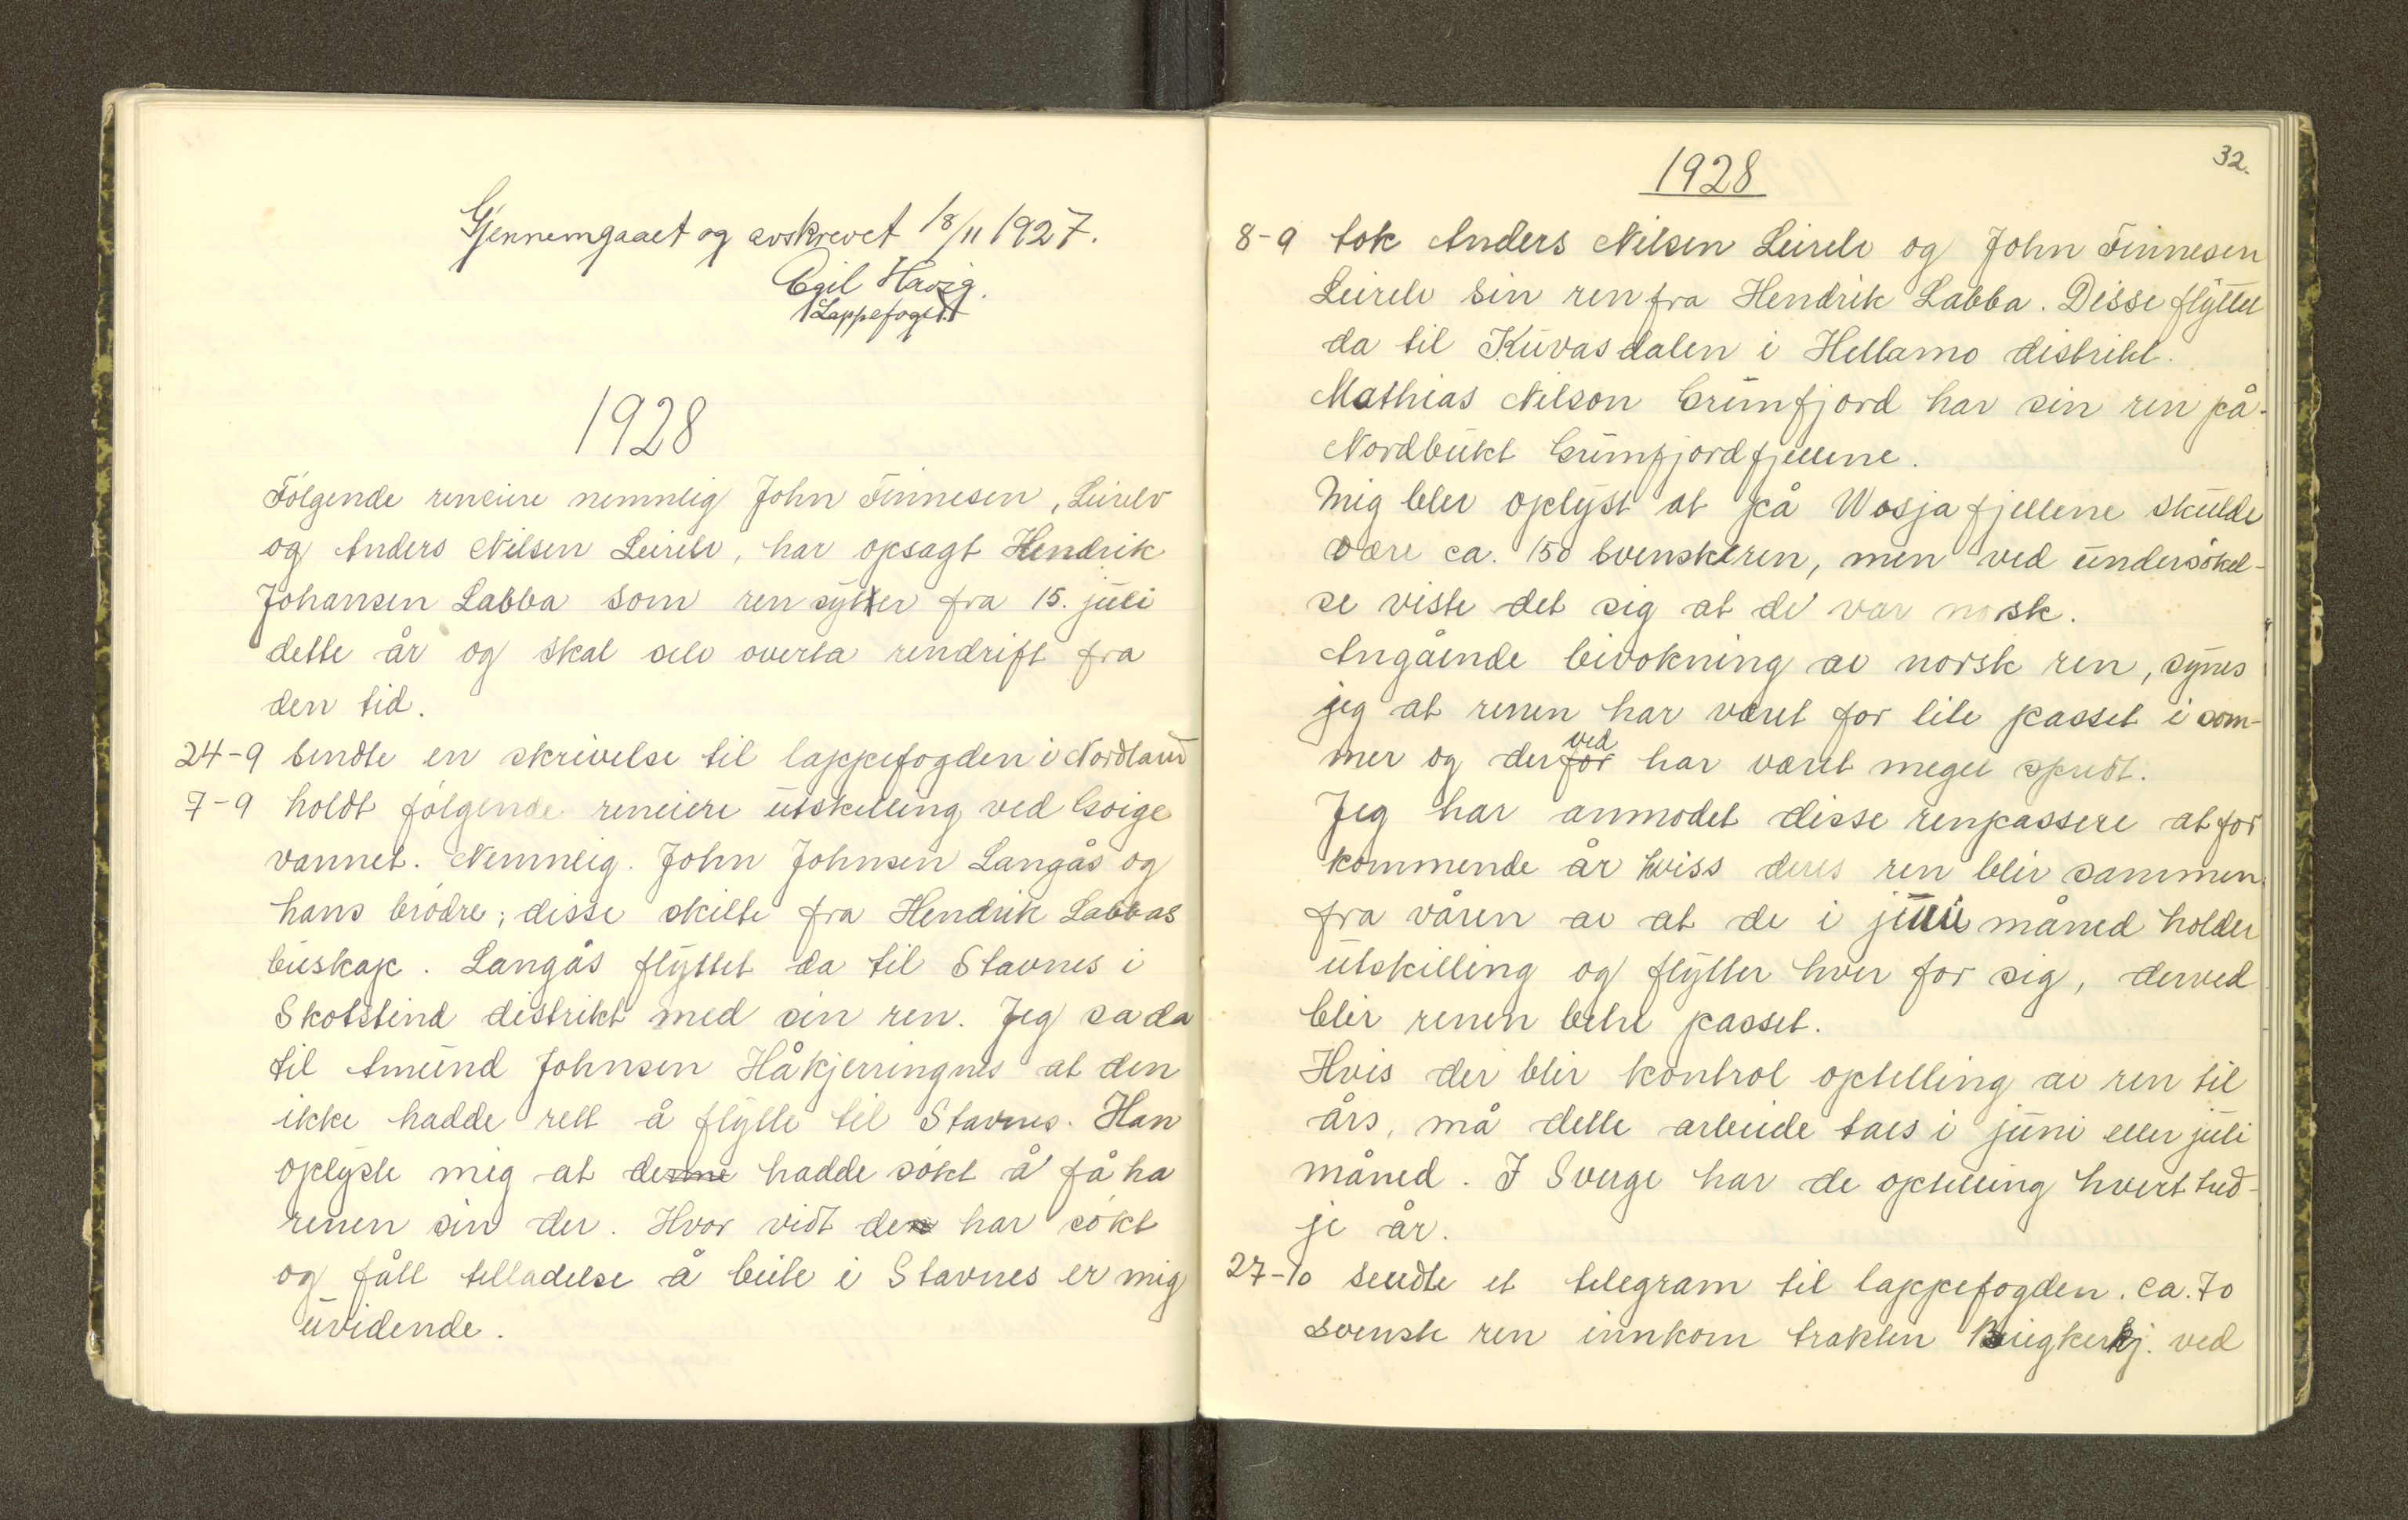 Gjennemgaaet og avskrevet 18/11 1927.
Egil Havig.
Lappefoged.
1928
Følgende reneiere nemnlig John Finnesen, Leirelv
og Anders Nilsen Leirelv, har opsagt Hendrik
Johansen Labba som ren sytter fra 15. juli
dette år og skal selv overta rendrift fra
den tid.
24-9 sendte en skrivelse til lappefogden i Nordland
7-9 holdt følgende reneiere utskilling ved Goige
vannet. Nemnlig. John Johnsen Langås og
hans brødre; disse skilte fra Hendrik Labbas
buskap. Langås flyttet da til Stavnes i
Skotstind distrikt med sin ren. Jeg sa da
til Amund Johnsen Håkjerringnes at den
ikke hadde rett å flytte til Stavnes. Han
oplyste mig at denne hadde søkt å få ha
renen sin der. Hvor vidt den har søkt
og fått tilladelse å beite i Stavnes er mig
uvidende.
32.
1928
8-9 tok Anders Nilsen Leirelv og John Finnesen
Leirelv sin ren fra Hendrik Labba. Disse flyttet
da til Kuvasdalen i Hellamo distrikt.
Mathias Nilson Grunfjord har sin ren på
Nordbukt Grunfjordfjellene.
Mig blev oplyst at på Wosja fjellene skulde
være ca. 150 svenskren, men ved undersøkel-
se viste det sig at de var norsk.
Angående bivokning av norsk ren, synes
jeg at renen har været for lite passet i som-
mer og derfor ved har været meget spredt.
Jeg har anmodet disse renpassere at for
kommende år hviss deres ren blir sammen
fra våren av at de i juli måned holder
utskilling og flytter hver for sig, derved
blir renen betre passet.
Hvis der blir kontrol optelling av ren til
års, må dette arbeide taes i juni eller juli
måned. I Sverge har de optelling hvert tred-
je år.
27-10 sendte et telegram til lappefogden. ca. 70
svensk ren innkom trakten ved